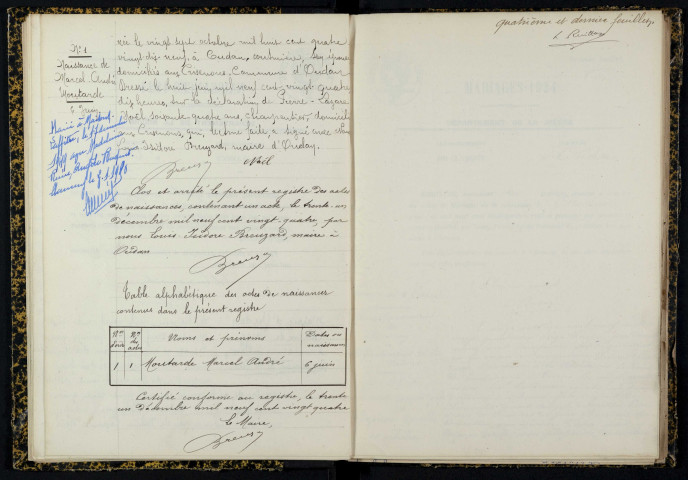 N° 1
Naissance de
Marcel André
Moutarde
6 Juin
née le vingt sept octobre mil huit cent quatre
vingt dix neuf, à Oudan, couturière, son épouse
domiciliés aux Cressonnes, Commune d'Oudan
Dressé le huit juin mil neuf cent vingt quatre
dix heures, sur la déclaration de Pierre Lazare
Noël, soixante quatre ans, charpentier, domicilié
aux Cressonnes, qui, lecture faite, a signé avec
Louis Isidore Breuzard, maire d'Oudan.
Noël
Breuz
Clos et arrêté le présent registre des actes
de naissances, contenant un acte, le trente un
décembre mil neuf cent vingt quatre, par
nous Louis Isidore Breuzard, maire à
Oudan
Breuz
Table alphabétique des actes de naissances
contenus dans le présent registre
Nos d'ordre Nos des actes Noms et prénoms Dates des naissances
1 1 Moutarde Marcel André 6 juin
Certifié conforme au registre, le trente
un décembre mil neuf cent vingt quatre
Le Maire,
Breuz
quatrième et dernier feuillet